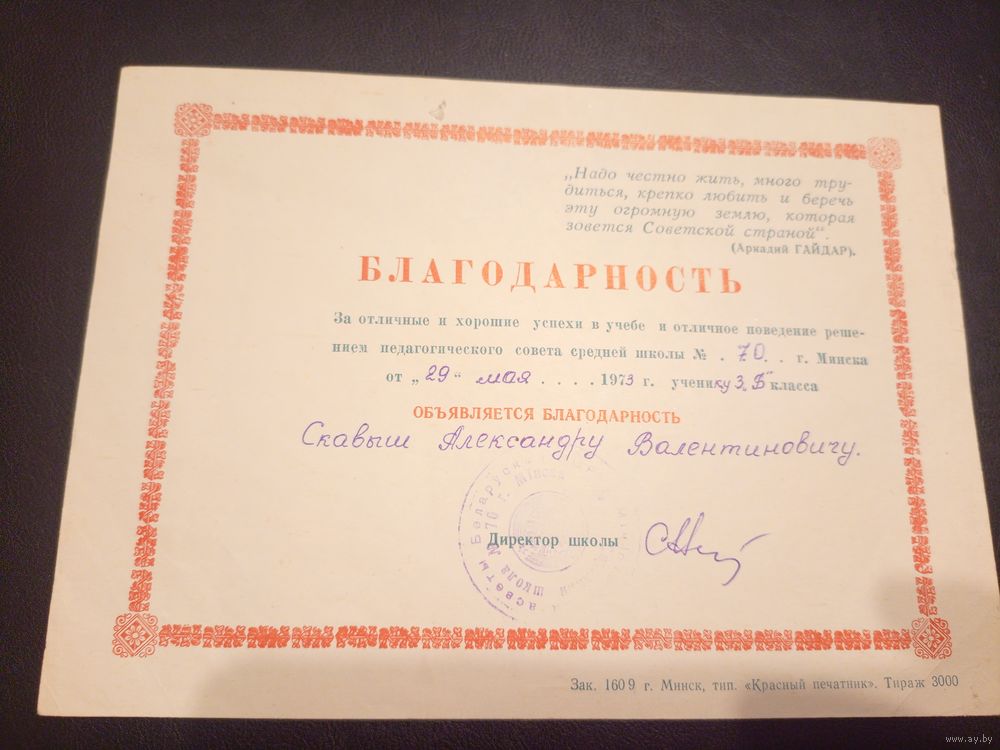 „Надо честно жить, много тру-
диться, крепко любить и беречь
эту огромную землю, которая
зовется Советской страной“.
(Аркадий ГАЙДАР).
БЛАГОДАРНОСТЬ
За отличные и хорошие успехи в учебе и отличное поведение реше-
нием педагогического совета средней школы № . 70. . г. Минска
от „29“ мая . . . . 1973 г. ученику 3 „Б“ класса
ОБЪЯВЛЯЕТСЯ БЛАГОДАРНОСТЬ
Скавыш Александру Валентиновичу.
Директор школы
Зак. 1609 г. Минск, тип. «Красный печатник». Тираж 3000
www.ay.by